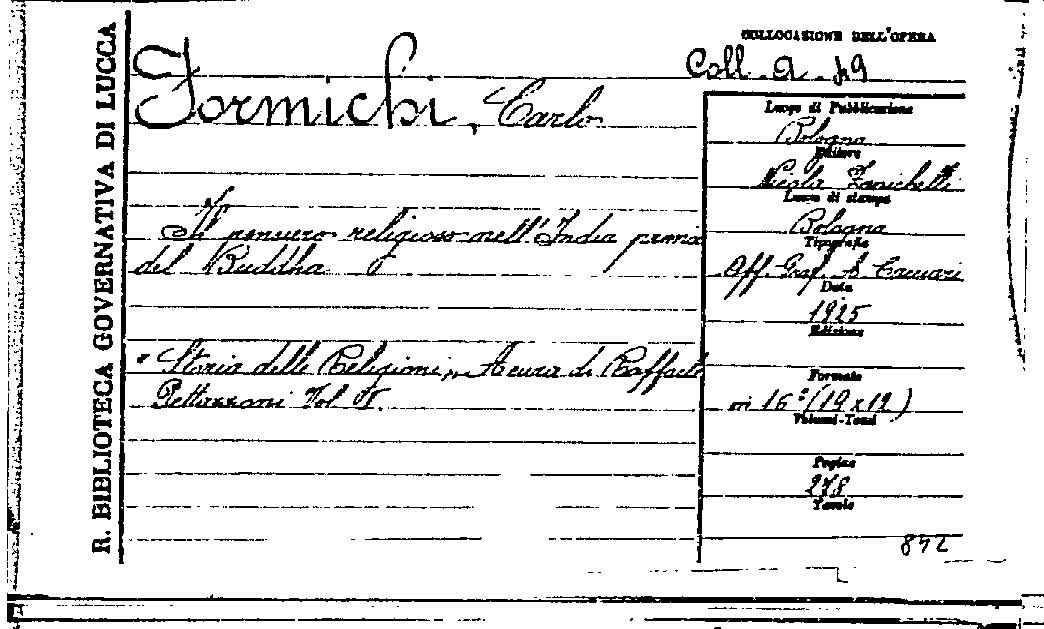 R. BIBLIOTECA GOVERNATIVA DI LUCCA
Formichi, Carlo
Il pensiero religioso nell'India prima
del Buddha
"Storia delle Religioni, a cura di Raffaele
Pettazzoni Vol.
COLLOCAZIONE DELL'OPERA
Coll. a.
Luogo di Pubblicazione
Bologna
Editore
Nicola Zanichelli
Luogo di stampa
Bologna
Tipografia
Off. Graf. A. Cacciari
Data
1925
Edizione
Formato
in 16° (19 x 12)
Volumi-Tomi
Pagine
278
Tavole
872